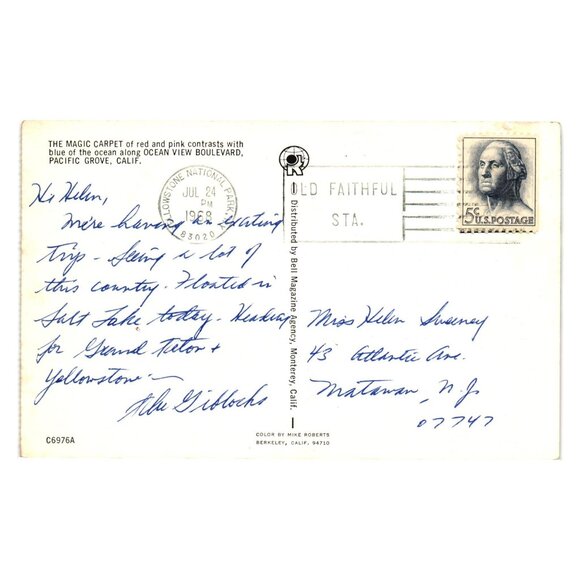 THE MAGIC CARPET of red and pink contrasts with
blue of the ocean along OCEAN VIEW BOULEVARD,
PACIFIC GROVE, CALIF.
YELLOWSTONE NATIONAL PARK, WY
JUL 24
PM
1968
83020
OLD FAITHFUL
STA.
5¢ U.S. POSTAGE
Hi Helen,
We're having an exciting
trip - Seeing a lot of
this country. Floated in
Salt Lake today. Heading
for Grand Teton +
Yellowstone —
The Giblocks
Distributed by Bell Magazine Agency, Monterey, Calif.
Miss Helen Sweeney
43 Atlantic Ave.
Matawan, N.J.
07747
C6976A
COLOR BY MIKE ROBERTS
BERKELEY, CALIF. 94710